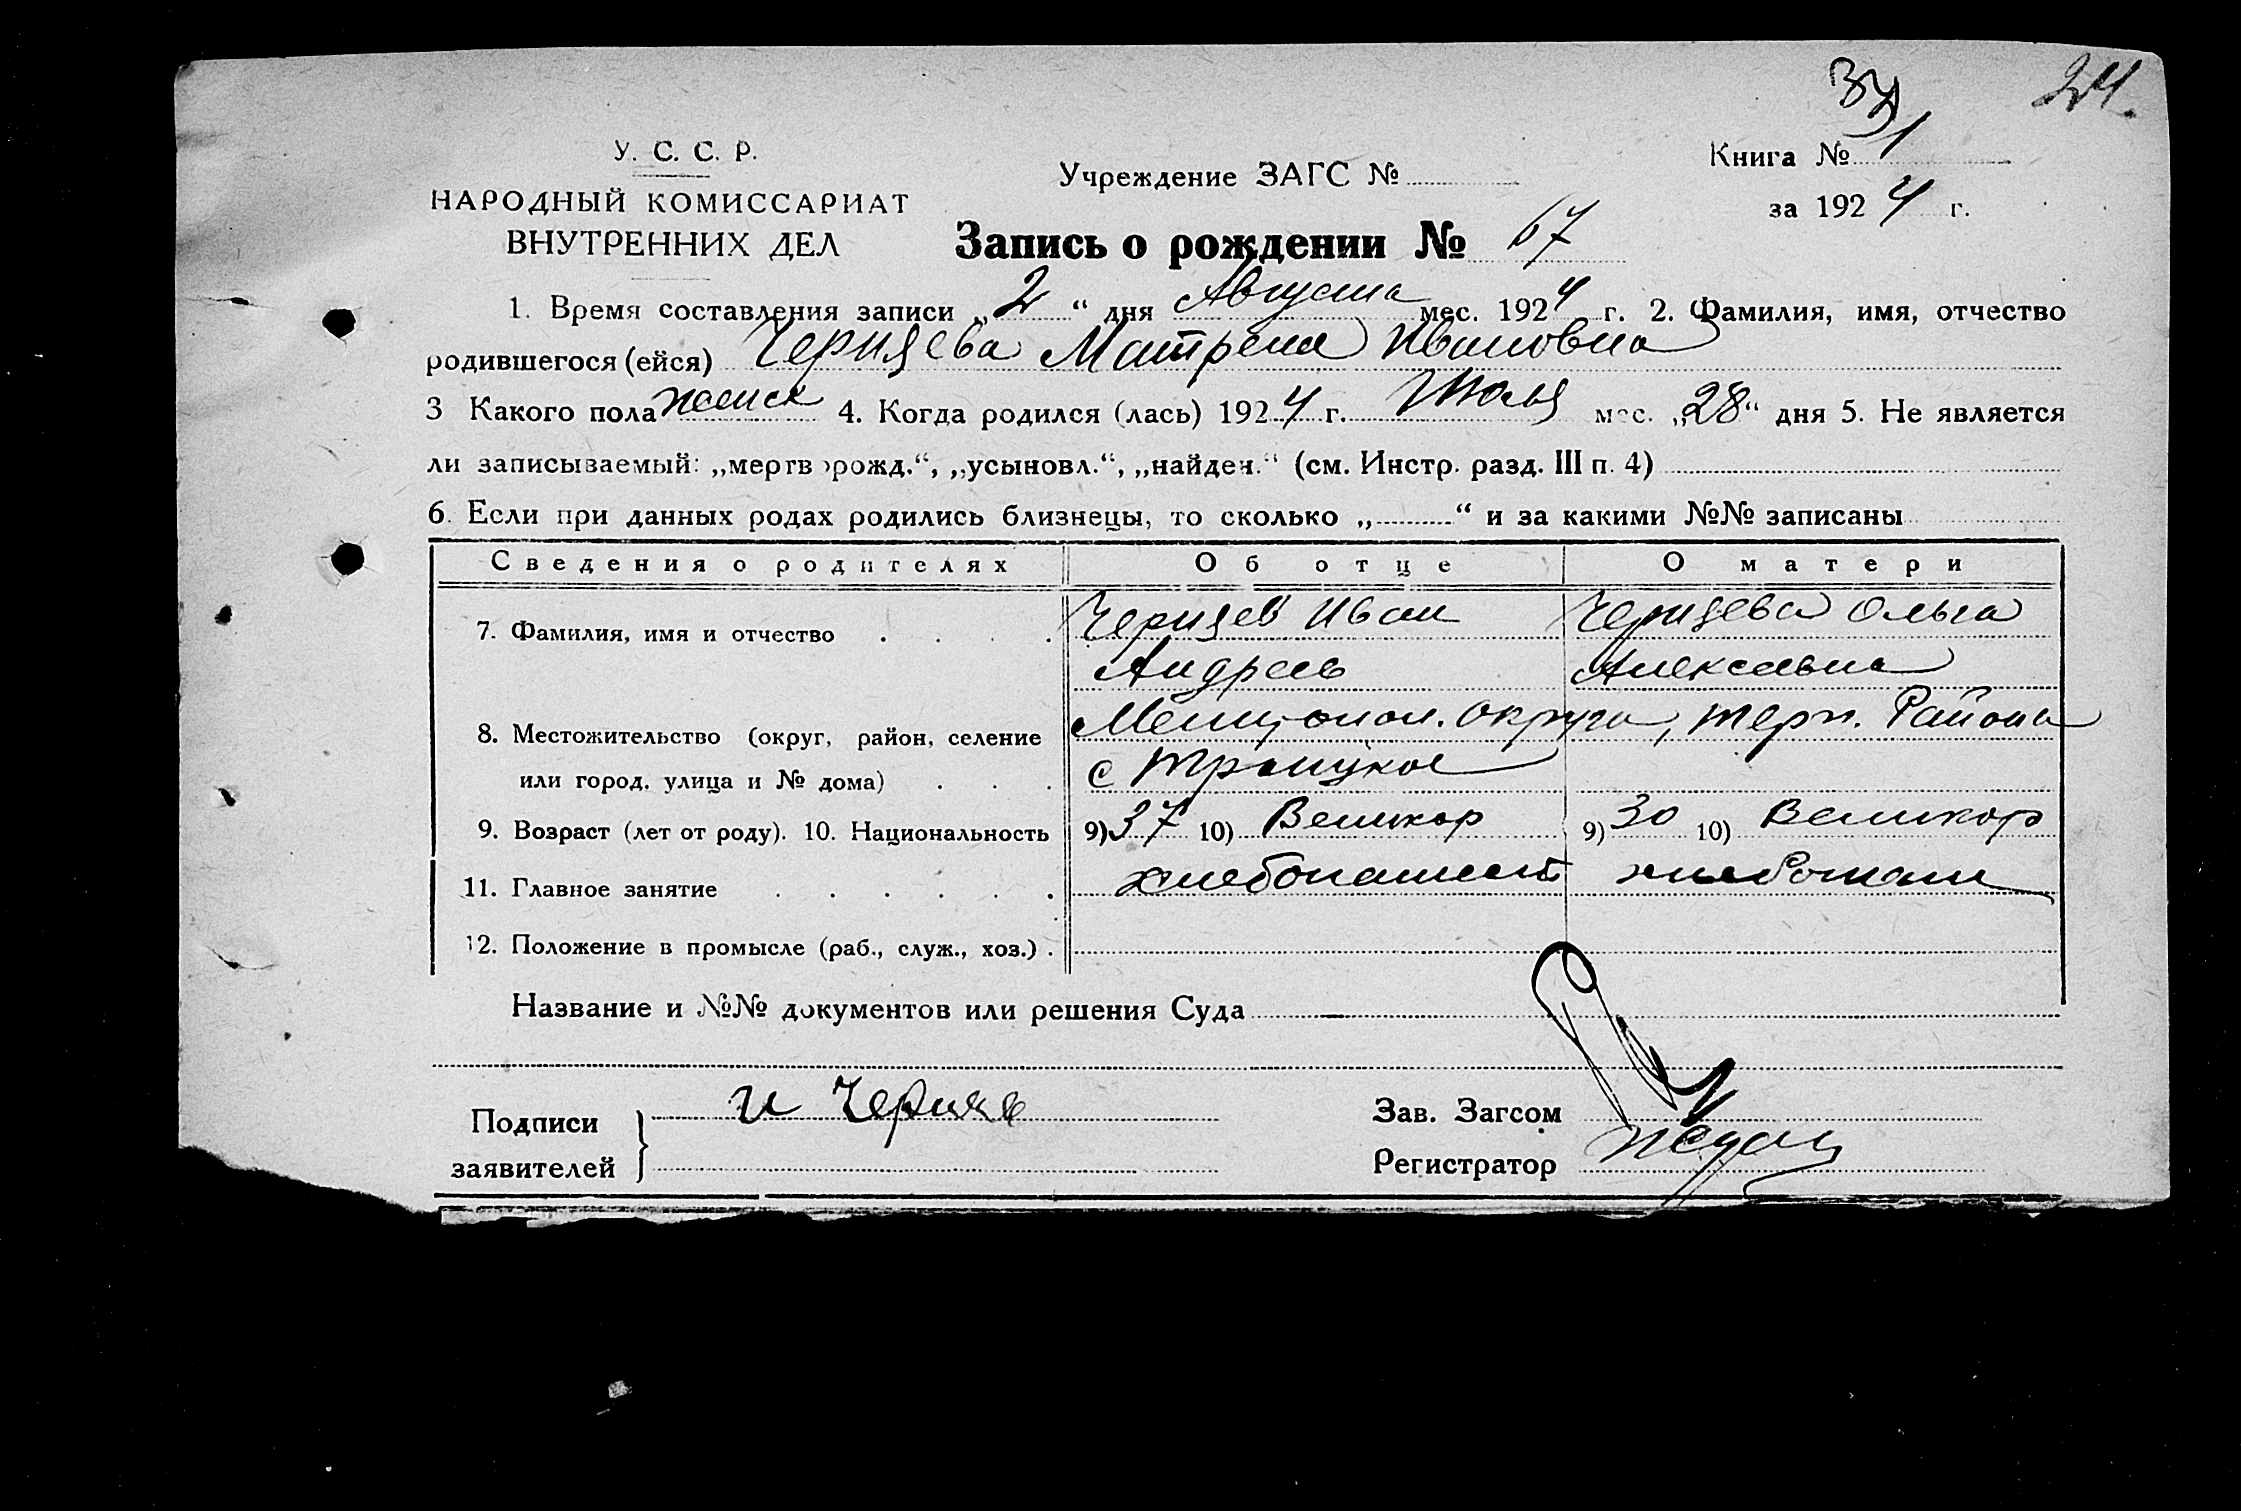 24.
У. С. С. Р.
НАРОДНЫЙ КОМИССАРИАТ
ВНУТРЕННИХ ДЕЛ
Учреждение ЗАГС №
Книга № 1
за 1924 г.
Запись о рождении № 67
1. Время составления записи „2“ дня Августа мес. 1924 г. 2. Фамилия, имя, отчество
родившегося (ейся) Черняева Матрена Ивановна
3 Какого пола женск 4. Когда родился (лась) 1924 г. Июля мес. „28“ дня 5. Не является
ли записываемый: „мертворожд.“, „усыновл.“, „найден.“ (см. Инстр. разд. III п. 4)
6. Если при данных родах родились близнецы, то сколько „ “ и за какими №№ записаны
Сведения о родителях Об отце О матери
7. Фамилия, имя и отчество Черняев Иван Черняева Ольга
Андреев Алексеевна
8. Местожительство (округ, район, селение Мелитопол. Округа, Терп. Района
или город, улица и № дома) с Троицкое
9. Возраст (лет от роду). 10. Национальность 9) 37 10) Великор 9) 30 10) Великор
11. Главное занятие хлебопашест хлебопаш
12. Положение в промысле (раб., служ., хоз.)
Название и №№ документов или решения Суда
Подписи заявителей И Черняев
Зав. Загсом
Регистратор